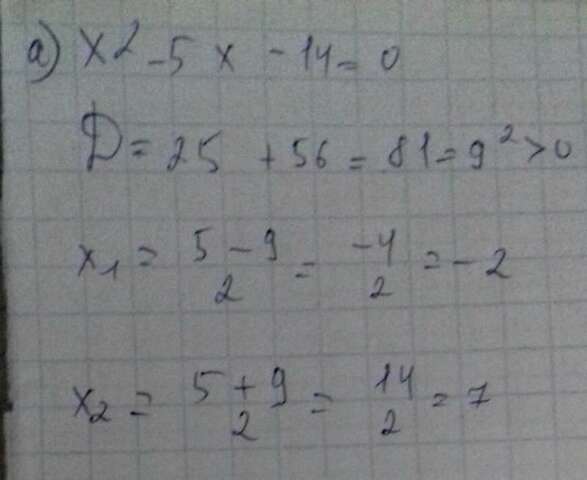 а) x² - 5x - 14 = 0
D = 25 + 56 = 81 = 9² > 0
x₁ = (5 - 9)/2 = -4/2 = -2
x₂ = (5 + 9)/2 = 14/2 = 7